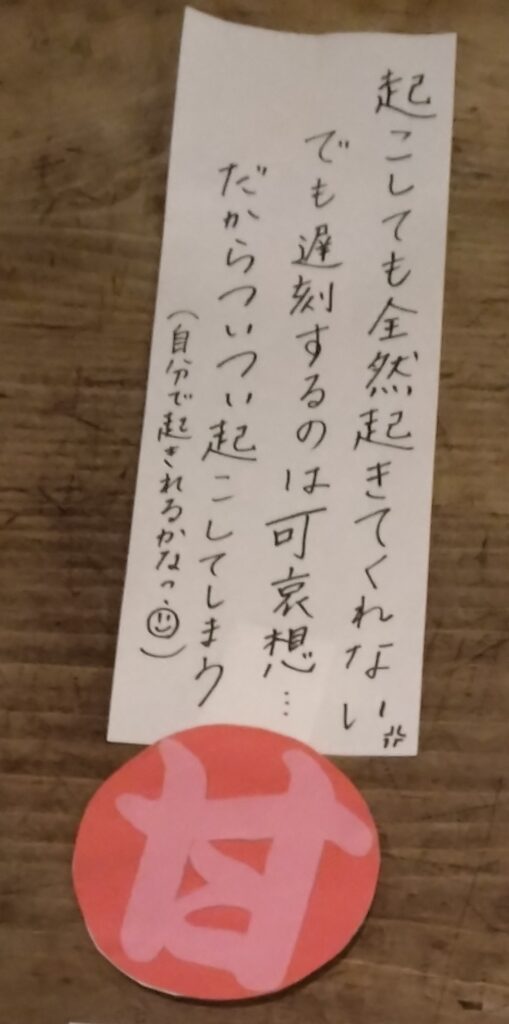 起こしても全然起きてくれない💢
でも遅刻するのは可哀想…
だからついつい起こしてしまう
（自分で起きれるかなっ・☺）
甘